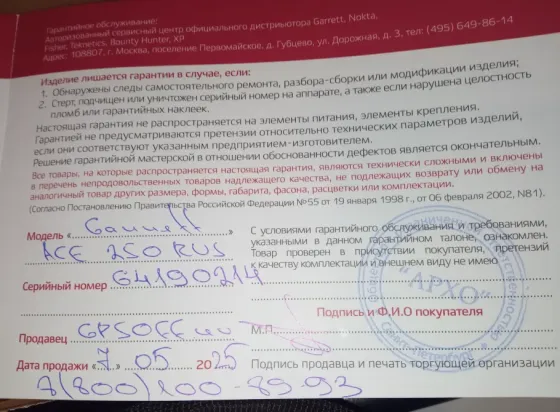 Гарантийное обслуживание:
Авторизованный сервисный центр официального дистрибьютора Garrett, Nokta,
Fisher, Teknetics, Bounty Hunter, XP
Адрес: 108807, г. Москва, поселение Первомайское, д. Губцево, ул. Дорожная, д. 3, тел: (495) 649-86-14
Изделие лишается гарантии в случае, если:
1. Обнаружены следы самостоятельного ремонта, разбора-сборки или модификации изделия;
2. Стерт, подчищен или уничтожен серийный номер на аппарате, а также если нарушена целостность
пломб или гарантийных наклеек.
Настоящая гарантия не распространяется на элементы питания, элементы крепления.
Гарантией не предусматриваются претензии относительно технических параметров изделий,
если они соответствуют указанным предприятием-изготовителем.
Решение гарантийной мастерской в отношении обоснованности дефектов является окончательным.
Все товары, на которые распространяется настоящая гарантия, являются технически сложными и включены
в перечень непродовольственных товаров надлежащего качества, не подлежащих возврату или обмену на
аналогичный товар других размера, формы, габарита, фасона, расцветки или комплектации.
(Согласно Постановлению Правительства Российской Федерации №55 от 19 января 1998 г., от 06 февраля 2002, N81).
Модель « Garrett »
ACE 250 RUS
Серийный номер 64190214
С условиями гарантийного обслуживания и требованиями,
указанными в данном гарантийном талоне, ознакомлен.
Товар проверен в присутствии покупателя, претензий
к качеству комплектации и внешнему виду не имею
"АРХО"
Санкт-Петербург
Подпись и Ф.И.О покупателя
Продавец GPSOFF
М.П.
Дата продажи «7» 05 2025
Подпись продавца и печать торгующей организации
8(800)100-89-93